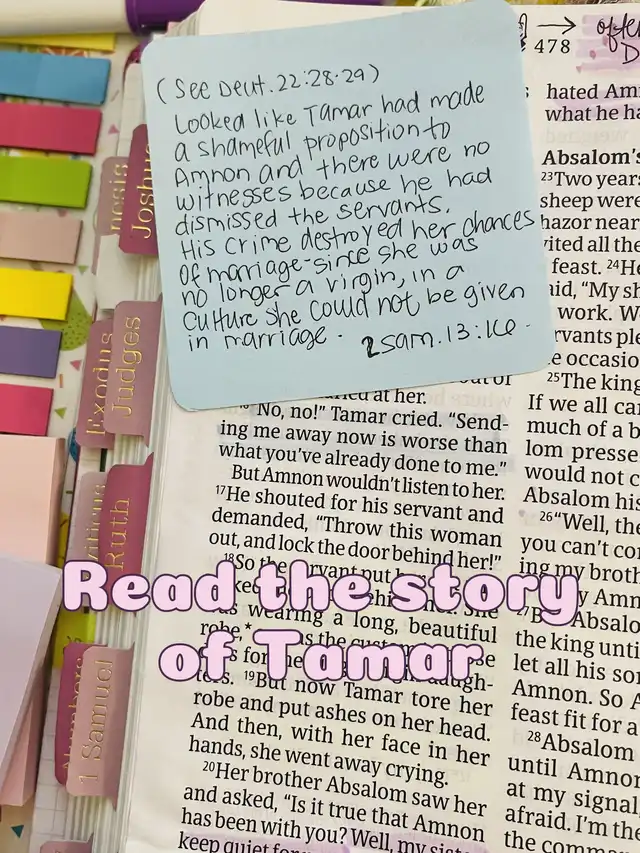 (See Deut. 22:28-29)
Looked like Tamar had made
a shameful proposition to
Amnon and there were no
witnesses because he had
dismissed the servants.
His crime destroyed her chances
of marriage-since she was
no longer a virgin, in a
culture she could not be given
in marriage. 2 Sam. 13:16.
at her.
"No, no!" Tamar cried. "Send-
ing me away now is worse than
what you've already done to me."
But Amnon wouldn't listen to her.
17He shouted for his servant and
demanded, "Throw this woman
out, and lock the door behind her!"
18So the servant put
wearing a long, beautiful
robe,*
19But now Tamar tore her
robe and put ashes on her head.
And then, with her face in her
hands, she went away crying.
20Her brother Absalom saw her
and asked, "Is it true that Amnon
has been with you? Well, my
keep quiet for
478
hated
what he
Absalom's
23Two years
sheep were
hazor near
all the
feast.
"My
work.
occasio
25The king
If we all
much of a b
lom presse
would not
Absalom his
26"Well, the
you can't
ing my
Amn
Absalo
the king until
let all his
Amnon. So A
feast fit for a
28Absalom
until Amnon
at my signal,
afraid. I'm the
the
Joshu
Exodus
Judges
Ruth
1 Samuel
Read the story
of Tamar